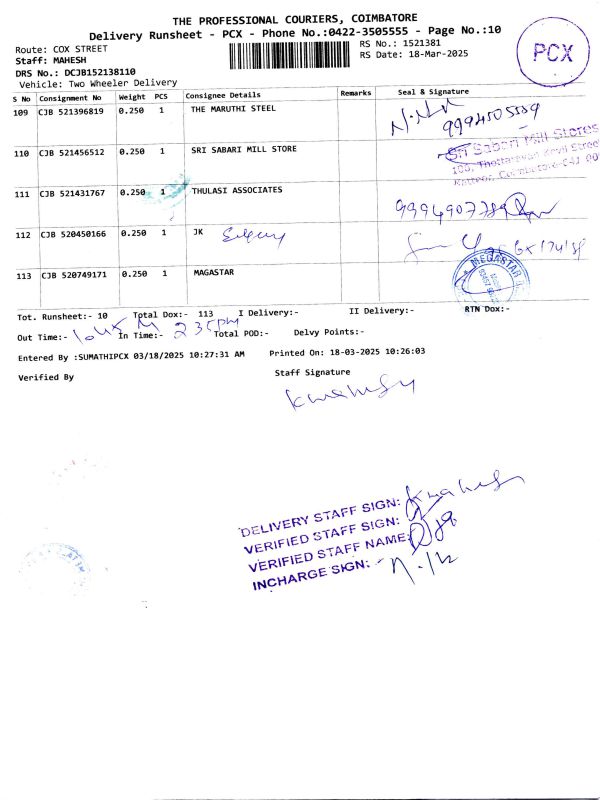 THE PROFESSIONAL COURIERS, COIMBATORE
Delivery Runsheet - PCX - Phone No.:0422-3505555 - Page No.:10
Route: COX STREET
RS No.: 1521381
PCX
Staff: MAHESH
RS Date: 18-Mar-2025
DRS No.: DCJB152138110
Vehicle: Two Wheeler Delivery
S No Consignment No Weight PCS Consignee Details Remarks Seal & Signature
109 CJB 521396819 0.250 1 THE MARUTHI STEEL
9994505559
110 CJB 521456512 0.250 1 SRI SABARI MILL STORE
Sri Sabari Mill Stores
111 CJB 521431767 0.250 1 THULASI ASSOCIATES
112 CJB 520450166 0.250 1 JK
113 CJB 520749171 0.250 1 MAGASTAR
MEGASTAR
Tot. Runsheet:- 10 Total Dox:- 113 I Delivery:- II Delivery:- RTN Dox:-
Out Time:- In Time:- Total POD:- Delvy Points:-
Entered By :SUMATHIPCX 03/18/2025 10:27:31 AM Printed On: 18-03-2025 10:26:03
Verified By Staff Signature
DELIVERY STAFF SIGN:
VERIFIED STAFF SIGN:
VERIFIED STAFF NAME:
INCHARGE SIGN: